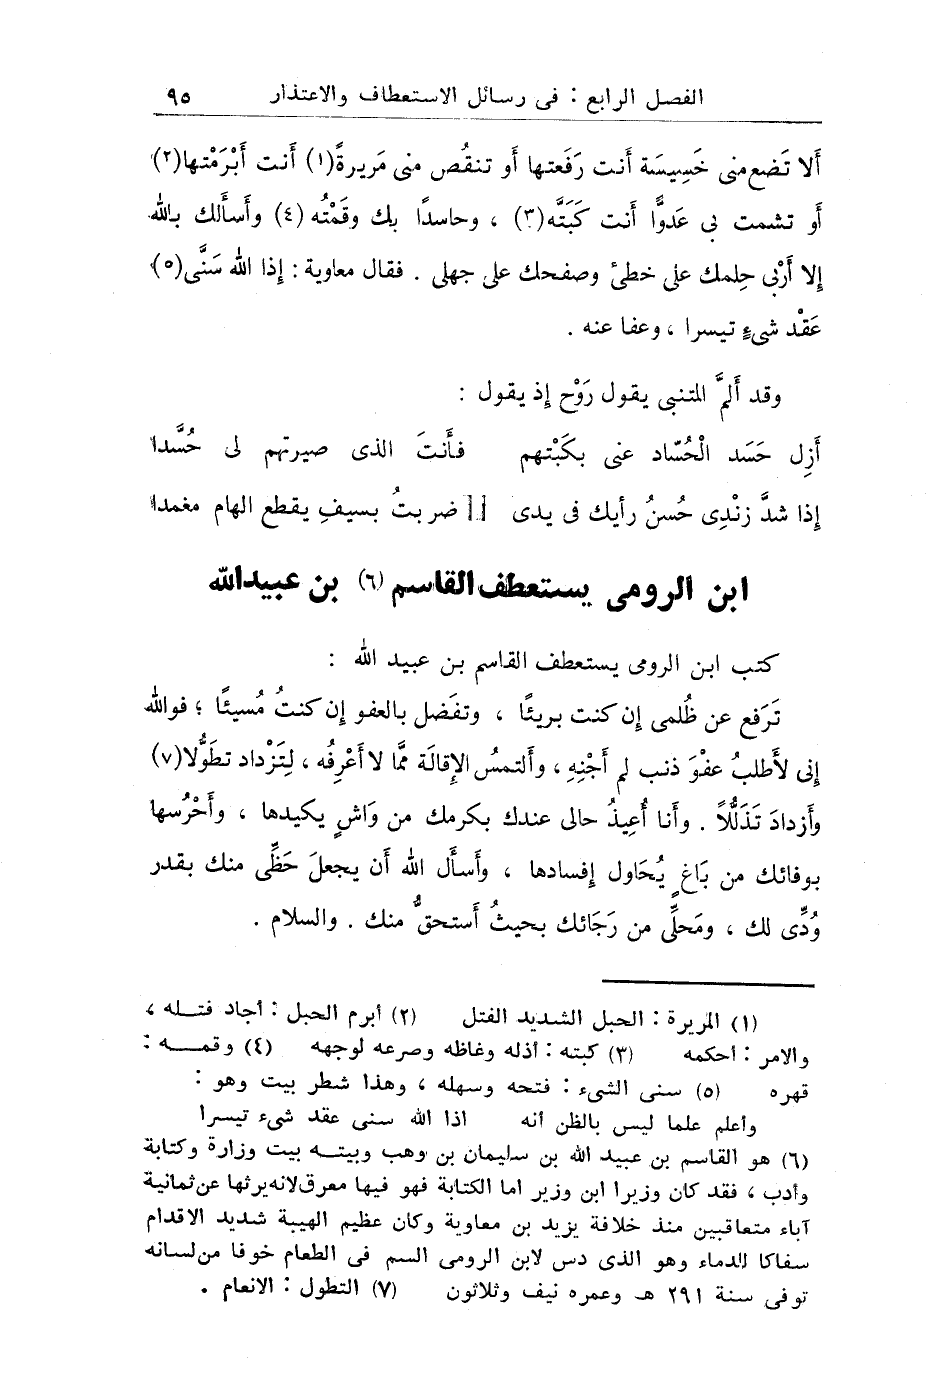 الفصل الرابع : فى رسائل الاستعطاف والاعتذار ٩٥
ألا تَضع منى خَسِيسَة أنت رَفَعتها أو تنقُص منى مَرِيرةً(١) أنت أَبْرَمْتها(٢)
أو تشمت بى عَدوًّا أنت كَبَتَّه(٣) ، وحاسدًا بك وقَمْتُه (٤) وأسألك بالله
إلا أَرْبى حِلمك على خطئ وصفحك على جهلى . فقال معاوية : إذا الله سَنَّى(٥)
عَقْد شىءٍ تيسرا ، وعفا عنه .
وقد أَلمَّ المتنبى يقول رَوْح إذ يقول :
أَزِل حَسَد الْحُسّاد عنى بكَبْتهم فأَنتَ الذى صيرتهم لى حُسَّدا
إذا شدَّ زنْدِى حُسنُ رأيك فى يدى ضربتُ بسيفٍ يقطع الهام مغمدا
ابن الرومى يستعطف القاسم (٦) بن عبيدالله
كتب ابن الرومى يستعطف القاسم بن عبيد الله :
تَرَفع عن ظُلمى إن كنت بريئًا ، وتفَضل بالعفو إن كنتُ مُسيئًا ؛ فوالله
إنى لأطلبُ عفْوَ ذنب لم أَجْنِهِ ، وألتمسُ الإقالَة ممَّا لا أَعْرِفُه ، لِتَزْداد تطَوُّلا(٧)
وأزدادَ تَذَلُّلاً . وأنا أُعِيذُ حالى عندك بكرمك من وَاشٍ يكيدها ، وأَحْرُسها
بوفائك من بَاغٍ يُحَاول إفسادها ، وأسأل الله أن يجعلَ حَظِّى منك بقدر
وُدِّى لك ، ومَحلِّى من رَجَائك بحيثُ أستحقُّ منك . والسلام .
(١) المريرة : الحبل الشديد الفتل (٢) أبرم الحبل : أجاد فتله ،
والامر : أحكمه (٣) كبته : أذله وغاظه وصرعه لوجهه (٤) وقمه :
قهره (٥) سنى الشىء : فتحه وسهله ، وهذا شطر بيت وهو :
وأعلم علما ليس بالظن أنه اذا الله سنى عقد شىء تيسرا
(٦) هو القاسم بن عبيد الله بن سليمان بن وهب وبيته بيت وزارة وكتابة
وأدب ، فقد كان وزيرا ابن وزير اما الكتابة فهو فيها معرق لانه يرثها عن ثمانية
آباء متعاقبين منذ خلافة يزيد بن معاوية وكان عظيم الهيبة شديد الاقدام
سفاكا للدماء وهو الذى دس لابن الرومى السم فى الطعام خوفا من لسانه
توفى سنة ٢٩١ هـ وعمره نيف وثلاثون (٧) التطول : الانعام .